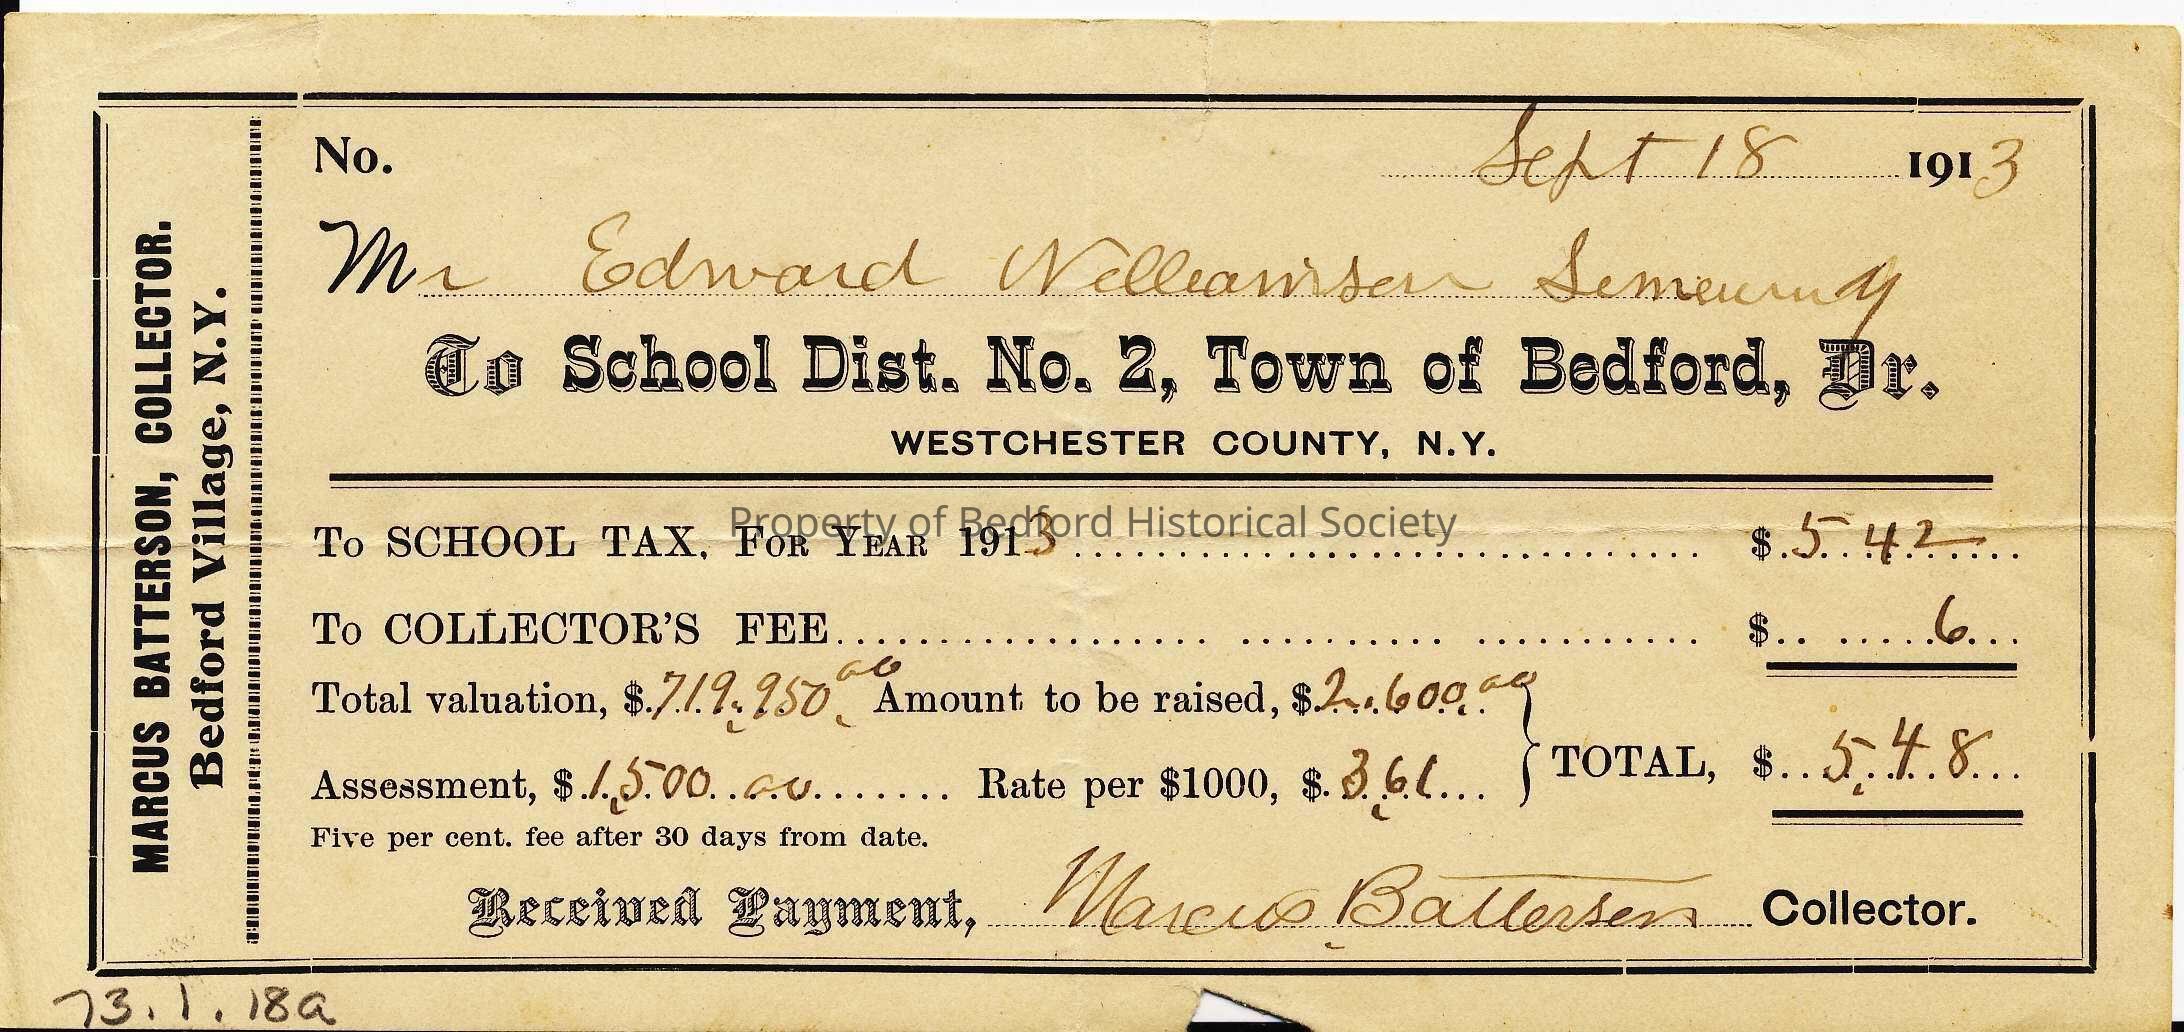 MARCUS BATTERSON, COLLECTOR.
Bedford Village, N.Y.
No. Sept 18 1913
Mr Edward Williamson
To School Dist. No. 2, Town of Bedford, Dr.
WESTCHESTER COUNTY, N.Y.
Property of Bedford Historical Society
To SCHOOL TAX, FOR YEAR 1913 $ 5 42
To COLLECTOR'S FEE $ 6
Total valuation, $ 719,950 00 Amount to be raised, $ 2,600 00
Assessment, $ 1,500 00 Rate per $1000, $ 3,61 TOTAL, $ 5,48
Five per cent. fee after 30 days from date.
Received Payment, Marcus Batterson Collector.
73.1.18a